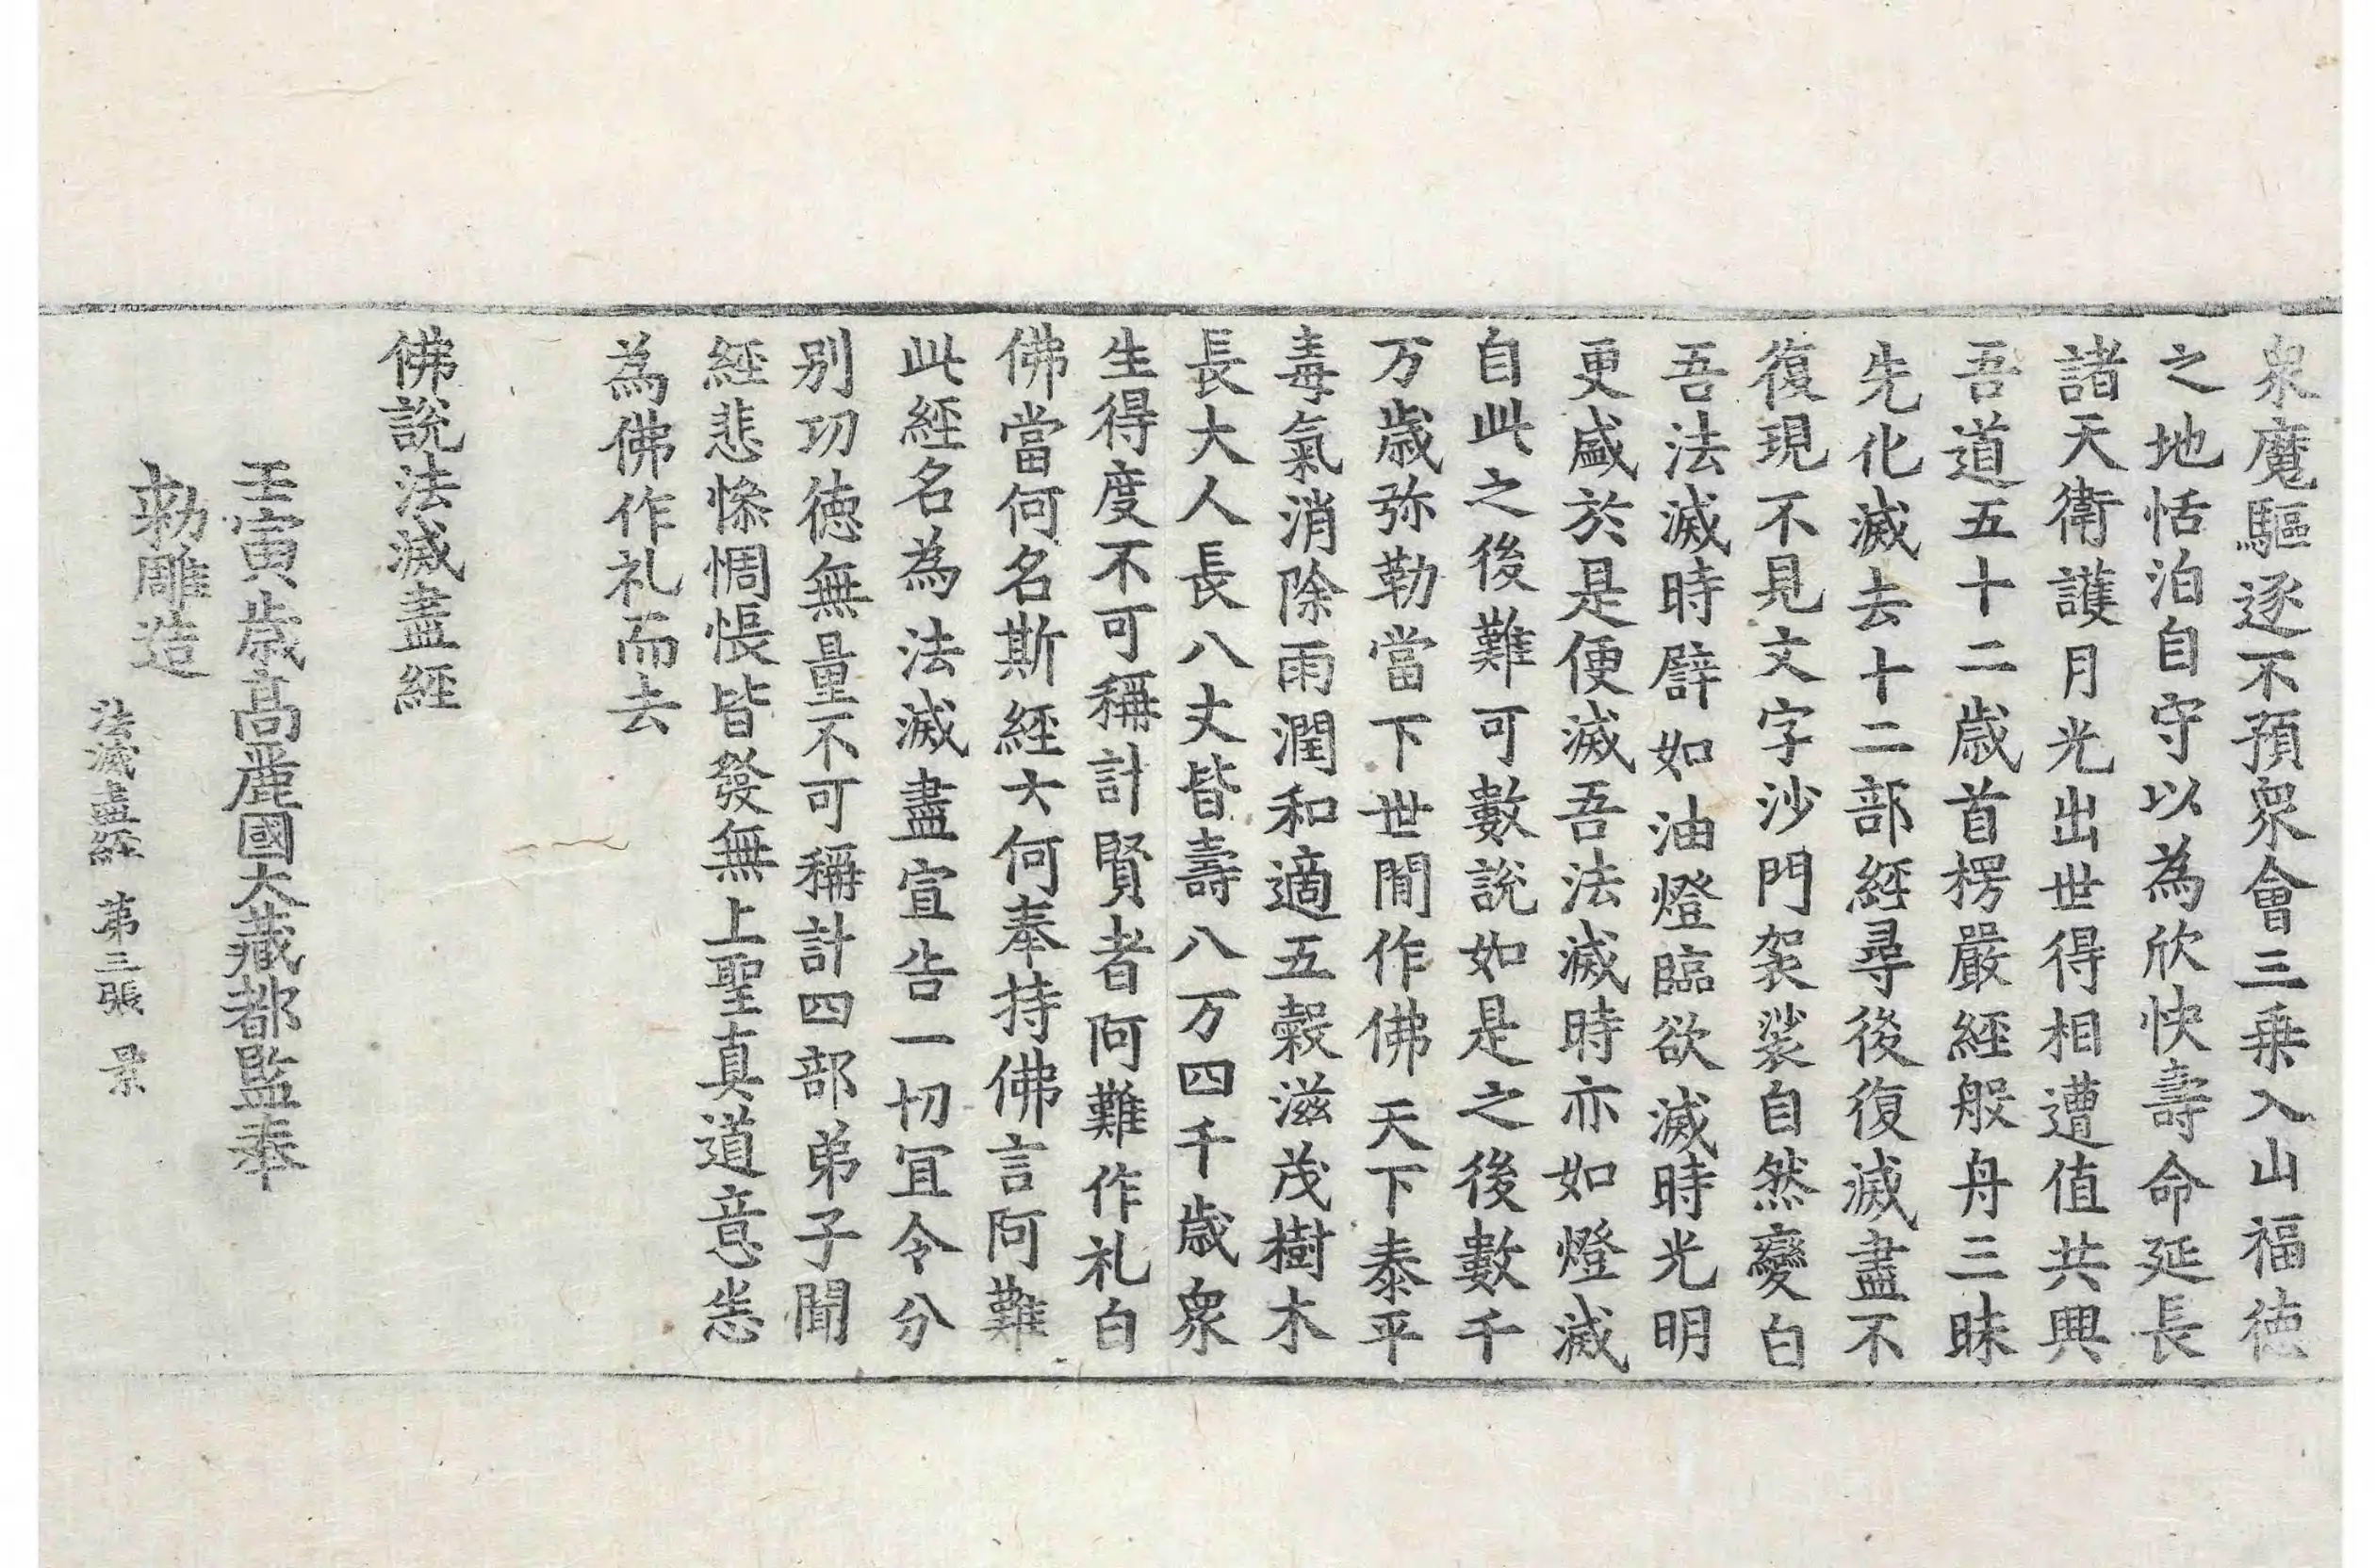 衆魔驅逐不預衆會三乗入山福徳
之地恬泊自守以為欣快壽命延長
諸天衛護月光出世得相遭值共興
吾道五十二歳首楞嚴經般舟三昧
先化滅去十二部經尋後復滅盡不
復現不見文字沙門袈裟自然變白
吾法滅時譬如油燈臨欲滅時光明
更盛於是便滅吾法滅時亦如燈滅
自此之後難可數說如是之後數千
万歳弥勒當下世閒作佛天下泰平
毒氣消除雨潤和適五糓滋茂樹木
長大人長八丈皆壽八万四千歳衆
生得度不可稱計賢者阿難作礼白
佛當何名斯經云何奉持佛言阿難
此經名為法滅盡宣告一切冝令分
別功徳無量不可稱計四部弟子聞
經悲慘惆悵皆發無上聖真道意悉
為佛作礼而去
佛說法滅盡經
壬寅歳高麗國大藏都監奉
勑雕造
法滅盡経 第三張 景